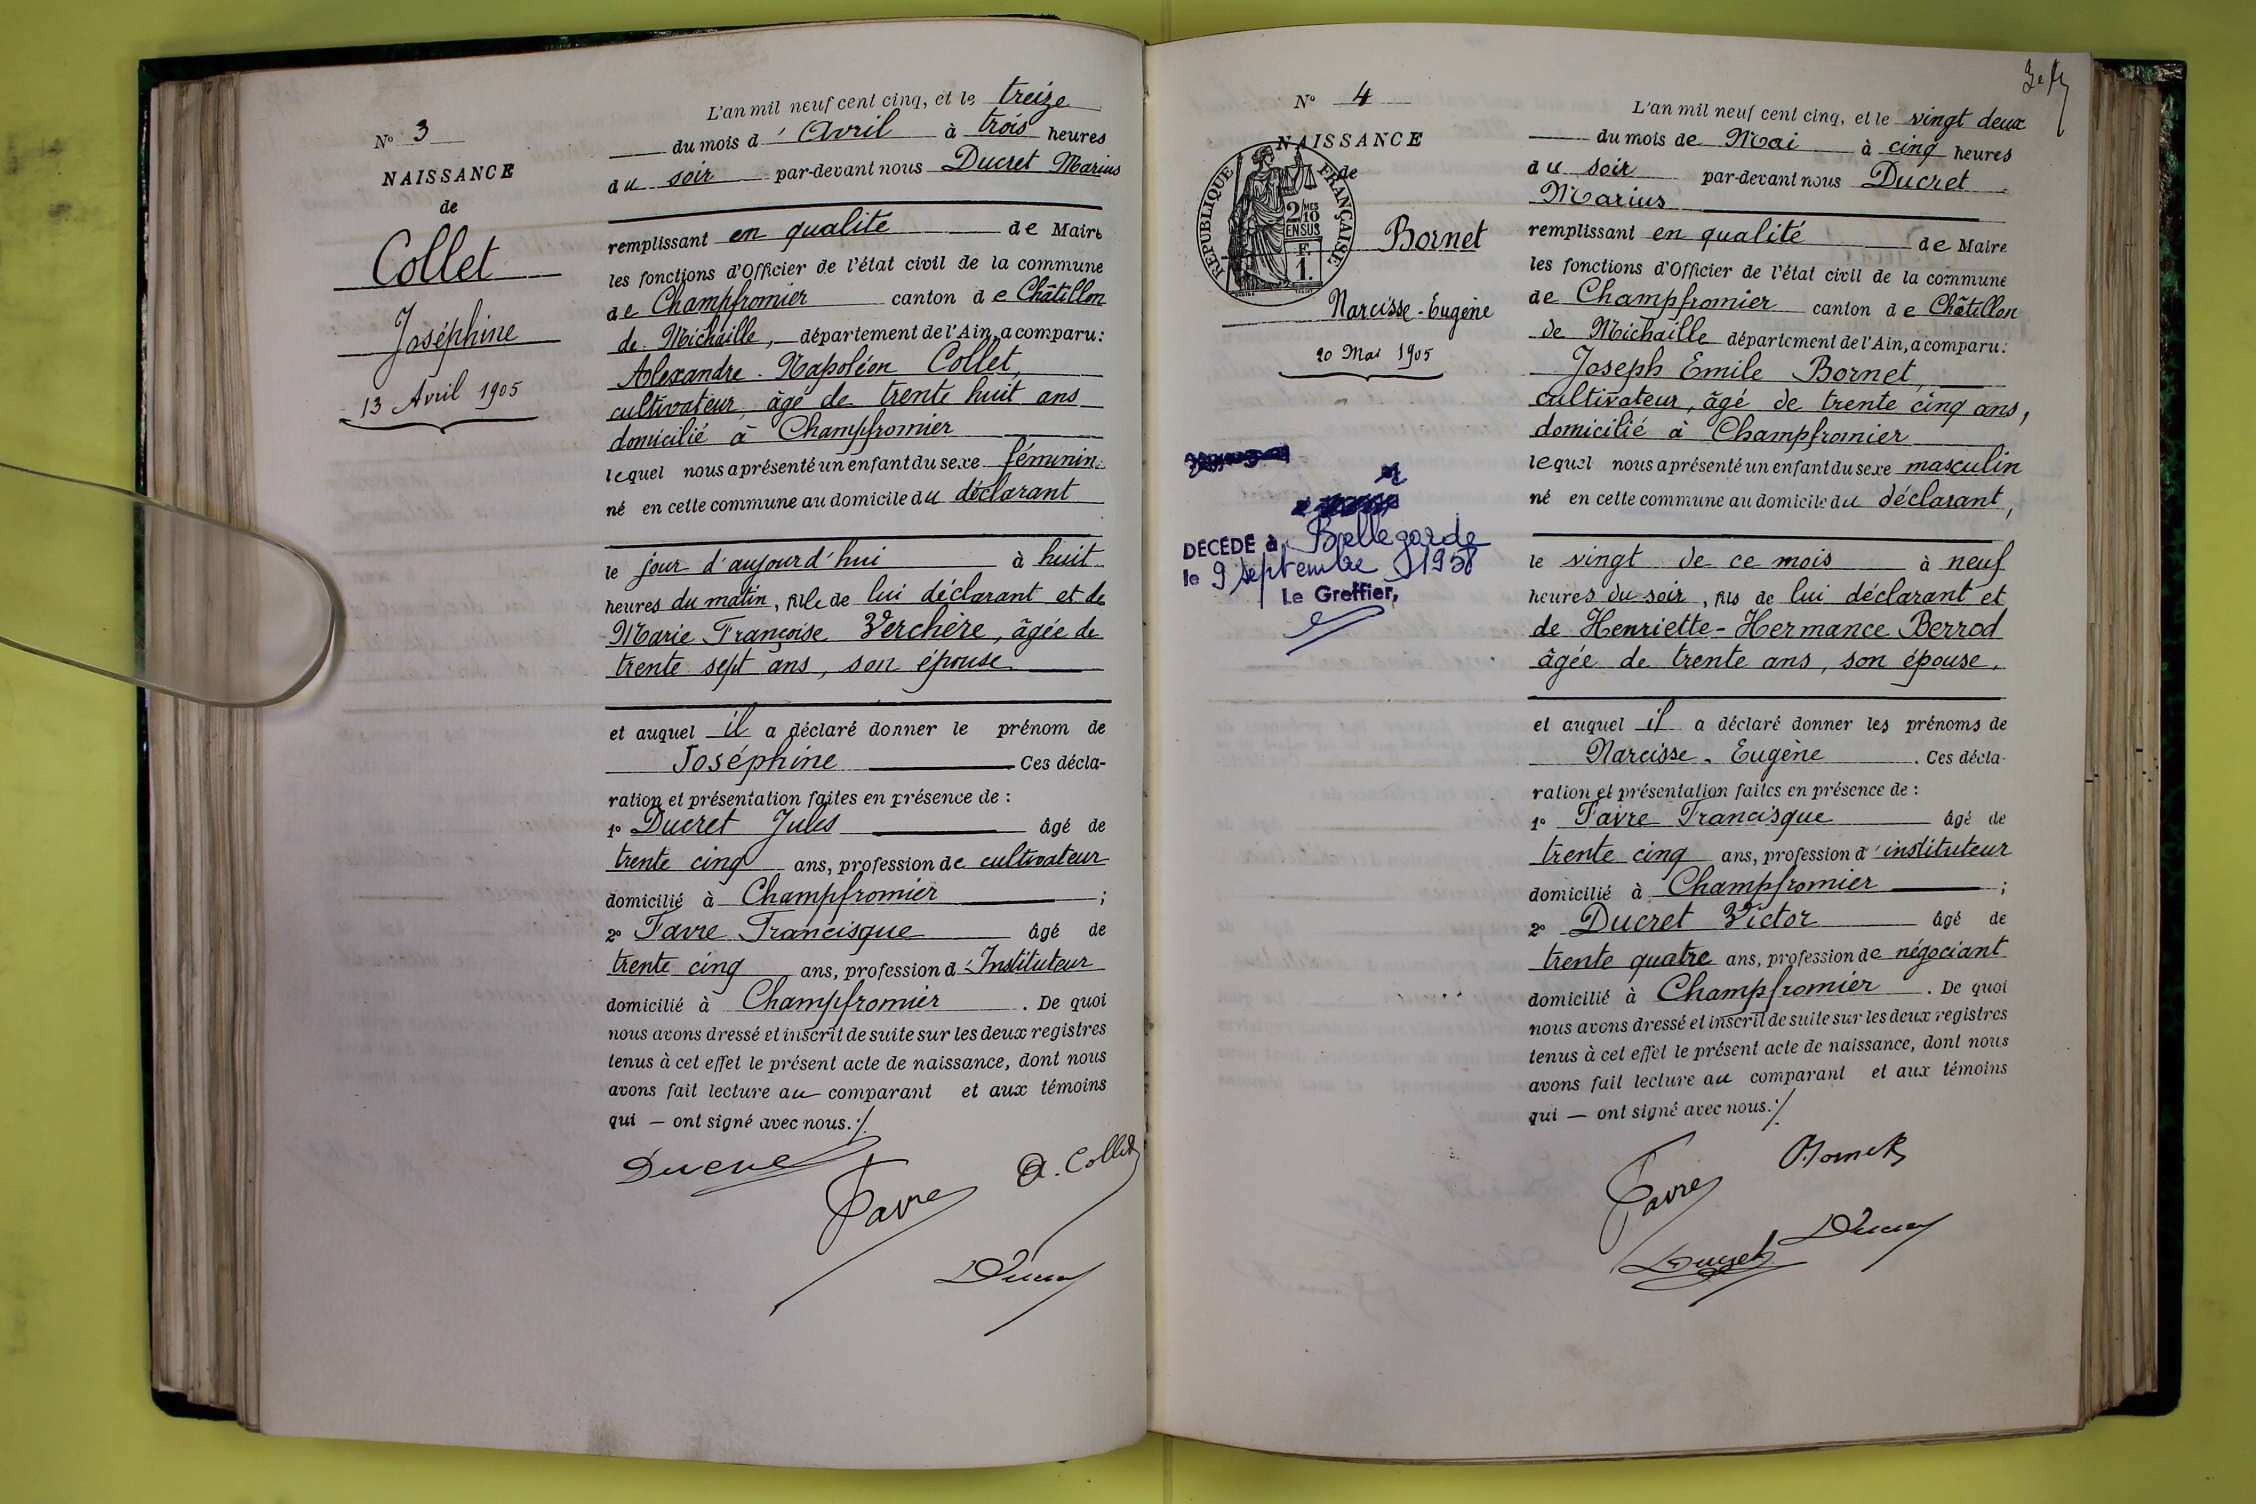 N° 3
NAISSANCE
de
Collet
Joséphine
13 Avril 1905
L'an mil neuf cent cinq, et le treize
du mois d'Avril à trois heures
du soir par-devant nous Ducret Marius
remplissant en qualité de Maire
les fonctions d'Officier de l'état civil de la commune
de Champfromier canton de Châtillon
de Michaille, département de l'Ain, a comparu:
Alexandre-Napoléon Collet,
cultivateur, âgé de trente huit ans
domicilié à Champfromier
lequel nous a présenté un enfant du sexe féminin
né en cette commune au domicile du déclarant
le jour d'aujourd'hui à huit
heures du matin, fille de lui déclarant et de
Marie Françoise Verchère, âgée de
trente sept ans, son épouse
et auquel il a déclaré donner le prénom de
Joséphine Ces décla-
ration et présentation faites en présence de :
1° Ducret Jules âgé de
trente cinq ans, profession de cultivateur
domicilié à Champfromier ;
2° Favre Francisque âgé de
trente cinq ans, profession d'Instituteur
domicilié à Champfromier . De quoi
nous avons dressé et inscrit de suite sur les deux registres
tenus à cet effet le présent acte de naissance, dont nous
avons fait lecture au comparant et aux témoins
qui — ont signé avec nous ./.
Ducret
Favre
A. Collet
N° 4
NAISSANCE
de
RÉPUBLIQUE FRANÇAISE
2/10 MES
EN SUS
F.
1.
Bornet
Narcisse-Eugène
20 Mai 1905
DÉCÉDÉ à Bellegarde
le 9 septembre 1958
Le Greffier,
L'an mil neuf cent cinq, et le vingt deux
du mois de Mai à cinq heures
du soir par-devant nous Ducret
Marius
remplissant en qualité de Maire
les fonctions d'Officier de l'état civil de la commune
de Champfromier canton de Châtillon
de Michaille département de l'Ain, a comparu:
Joseph Emile Bornet,
cultivateur, âgé de trente cinq ans,
domicilié à Champfromier
lequel nous a présenté un enfant du sexe masculin
né en cette commune au domicile du déclarant,
le vingt de ce mois à neuf
heures du soir, fils de lui déclarant et
de Henriette-Hermance Berrod
âgée de trente ans, son épouse.
et auquel il a déclaré donner les prénoms de
Narcisse-Eugène . Ces décla-
ration et présentation faites en présence de :
1° Favre Francisque âgé de
trente cinq ans, profession d'instituteur
domicilié à Champfromier ;
2° Ducret Victor âgé de
trente quatre ans, profession de négociant
domicilié à Champfromier . De quoi
nous avons dressé et inscrit de suite sur les deux registres
tenus à cet effet le présent acte de naissance, dont nous
avons fait lecture au comparant et aux témoins
qui — ont signé avec nous ./.
Favre
Bornet
Ducret